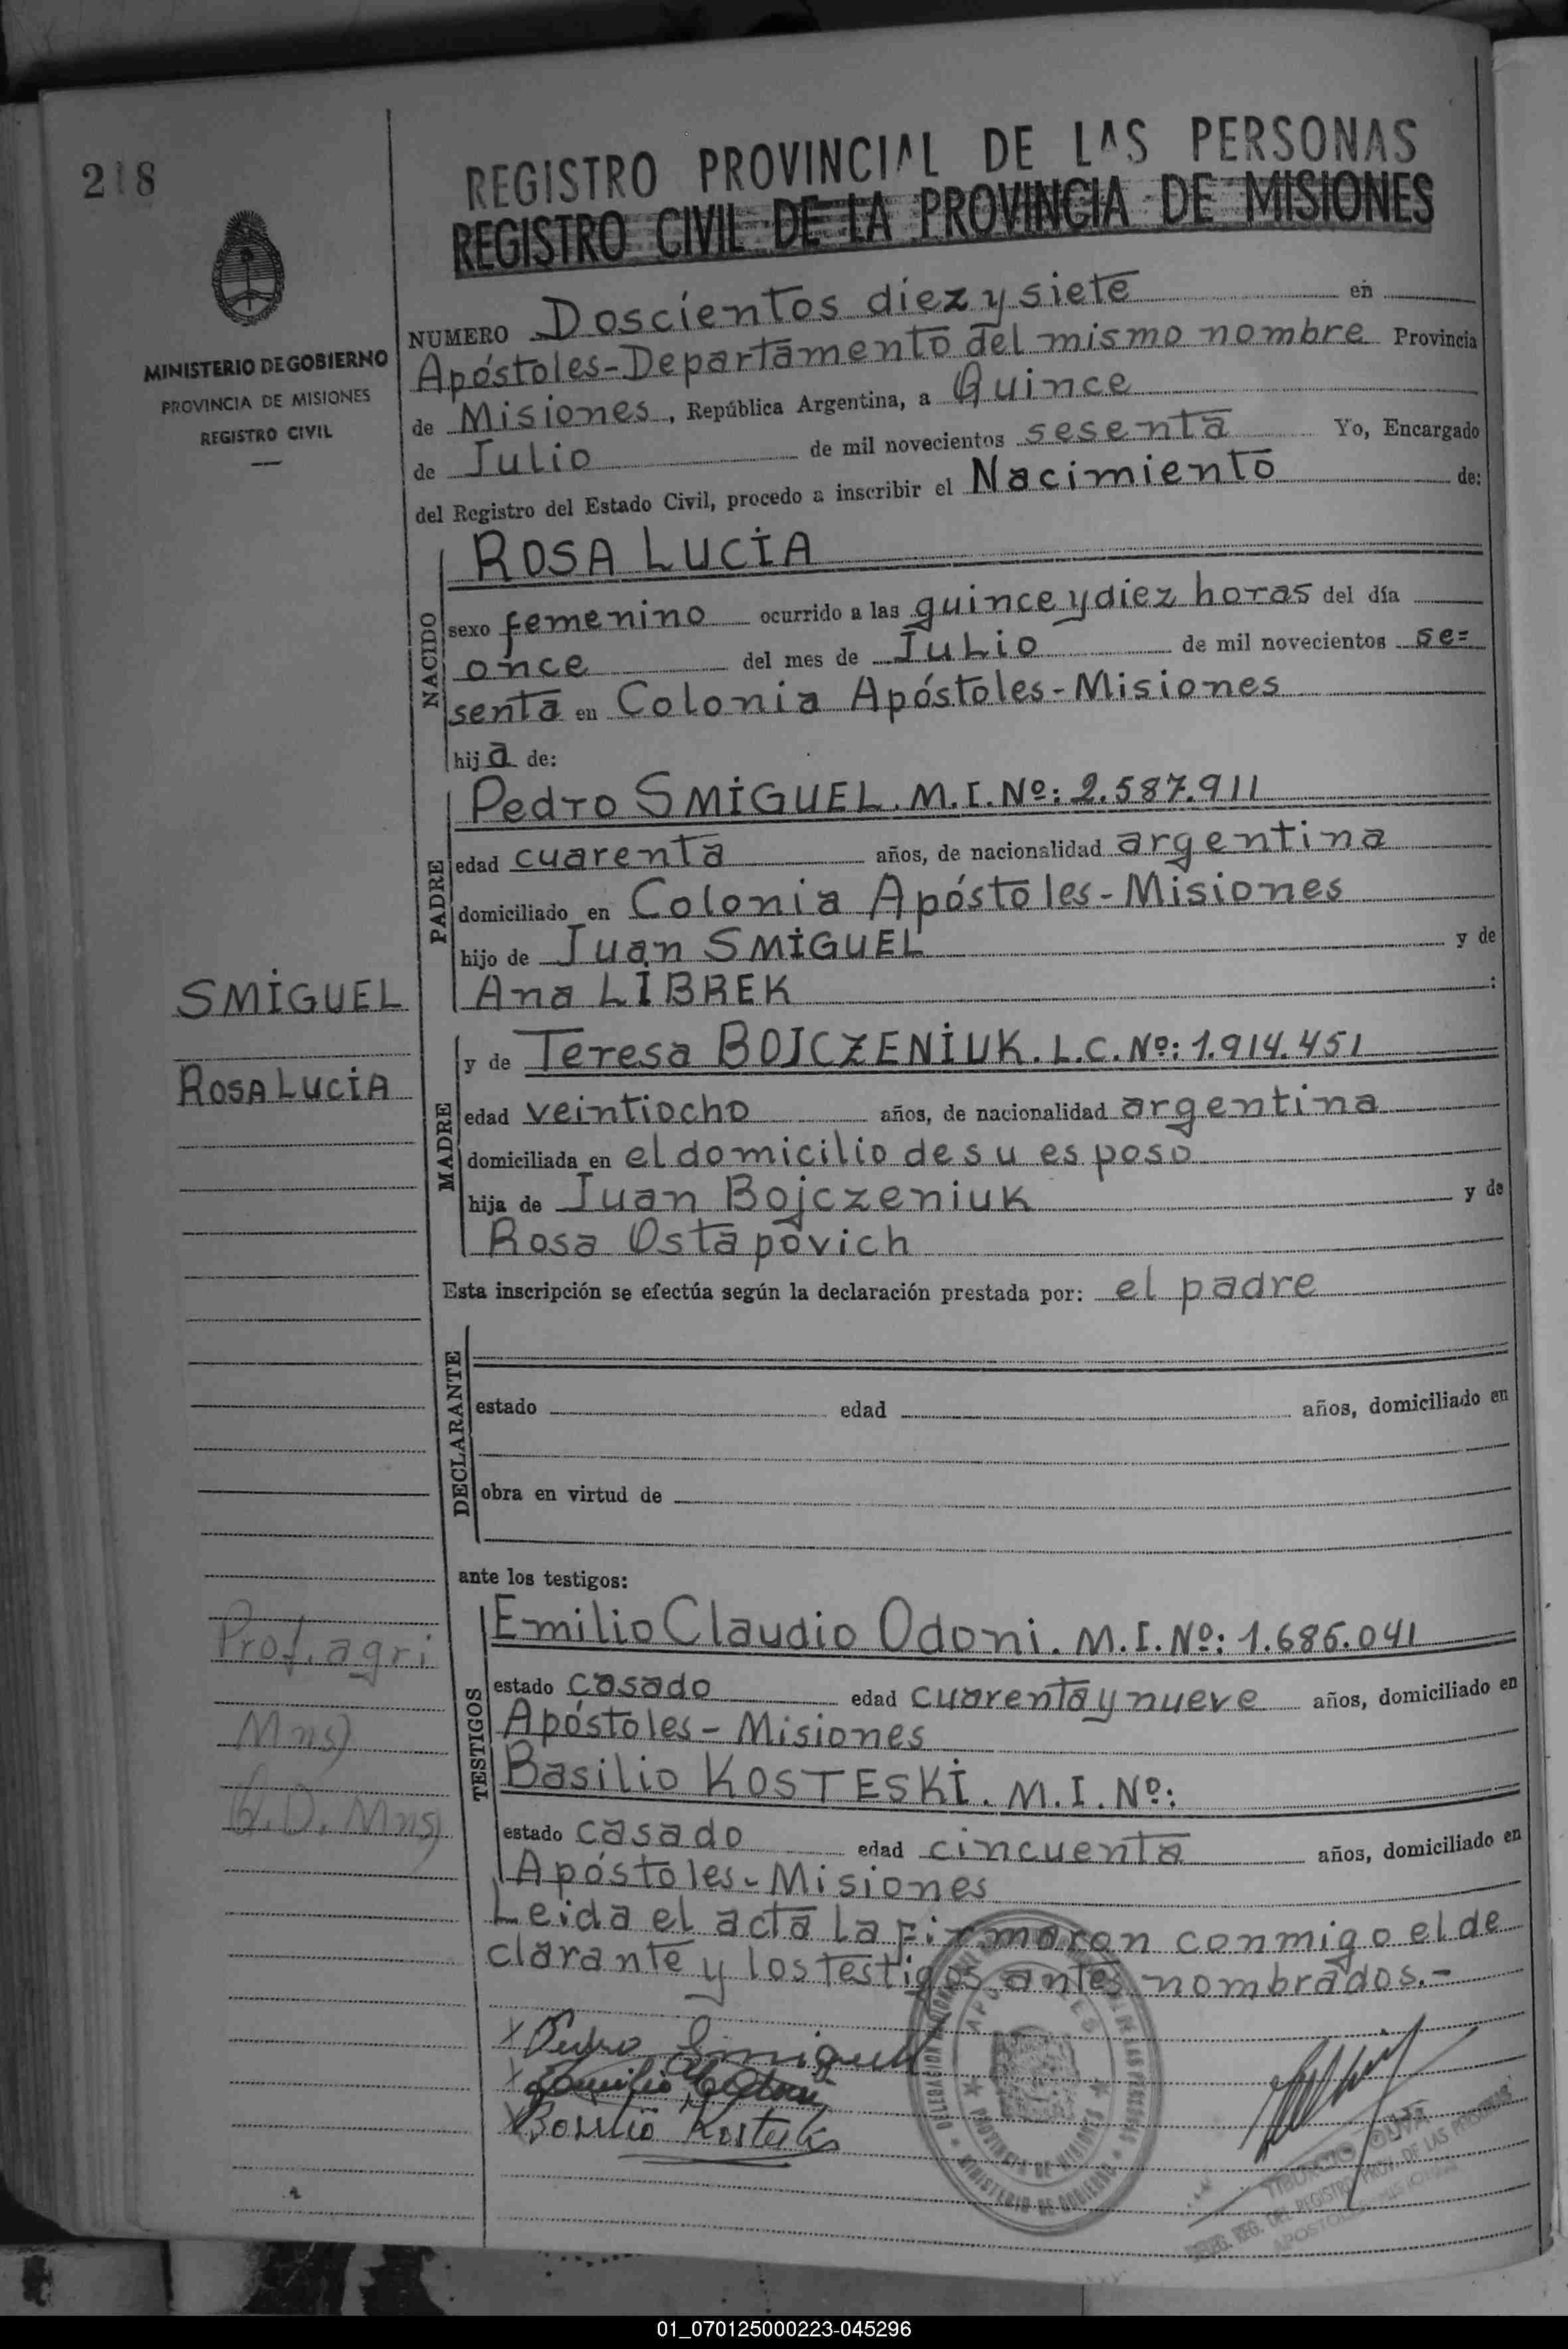 218
REGISTRO PROVINCIAL DE LAS PERSONAS
REGISTRO CIVIL DE LA PROVINCIA DE MISIONES
MINISTERIO DE GOBIERNO
PROVINCIA DE MISIONES
REGISTRO CIVIL
NUMERO Doscientos diez y siete en
Apóstoles-Departamento del mismo nombre Provincia
de Misiones, República Argentina, a Quince
de Julio de mil novecientos sesenta Yo, Encargado
del Registro del Estado Civil, procedo a inscribir el Nacimiento de:
NACIDO
ROSA LUCIA
sexo femenino ocurrido a las quince y diez horas del día
once del mes de Julio de mil novecientos se=
senta en Colonia Apóstoles-Misiones
hija de:
PADRE
Pedro SMIGUEL. M.I.Nº: 2.587.911
edad cuarenta años, de nacionalidad argentina
domiciliado en Colonia Apóstoles-Misiones
hijo de Juan SMIGUEL y de
Ana LIBREK :
SMIGUEL
ROSA LUCIA
MADRE
y de Teresa BOJCZENIUK. L.C.Nº: 1.914.451
edad veintiocho años, de nacionalidad argentina
domiciliada en el domicilio de su esposo
hija de Juan Bojczeniuk y de
Rosa Ostapovich
Esta inscripción se efectúa según la declaración prestada por: el padre
DECLARANTE
estado edad años, domiciliado en
obra en virtud de
ante los testigos:
TESTIGOS
Emilio Claudio Odoni. M.I.Nº: 1.686.041
estado casado edad cuarenta y nueve años, domiciliado en
Apóstoles-Misiones
Basilio KOSTESKI. M.I.Nº:
estado casado edad cincuenta años, domiciliado en
Apóstoles-Misiones
Leida el acta la firmaron conmigo el de
clarante y los testigos antes nombrados.-
Prof. agri
Mns)
Pedro Smiguel
Basilio Kosteski
APOSTOLES
PROVINCIA DE MISIONES
MINISTERIO DE GOBIERNO
TIBURCIO
REG. DEL REGISTRO PROV. DE LAS PERSONAS
01_070125000223-045296